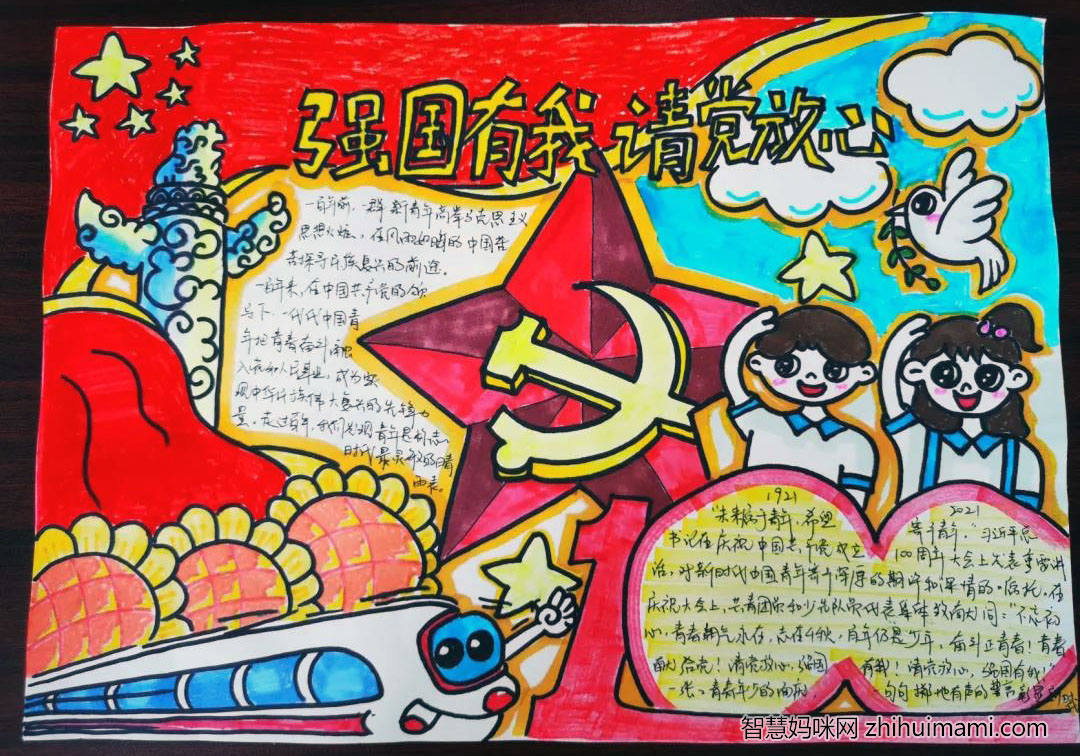 强国有我 请党放心
一百年前，一群新青年高举马克思主义
思想火炬，在风雨如晦的中国苦
苦探寻民族复兴的前途。
一百年来，在中国共产党的领
导下，一代代中国青
年把青春奋斗融
入党和人民事业，成为实
现中华民族伟大复兴的先锋力
量。走过百年，我们发现青年是标志
时代最灵敏的晴
雨表。
1921
"未来属于青年，希望
书记在庆祝中国共产党成立
话，对新时代中国青年寄予深厚的期许和深情的嘱托。在
庆祝大会上，共青团员和少先队员代表集体致献词："不忘初
心，青春朝气永在，志在千秋，百年仍是少年，奋斗正青春！青春
献给党！请党放心，强国
一张张青春年少的面庞，
2021
寄予青年。"习近平总
100周年大会上发表重要讲
有我！请党放心，强国有我！"
一句句掷地有声的誓言
智慧妈咪网 zhihuimami.com